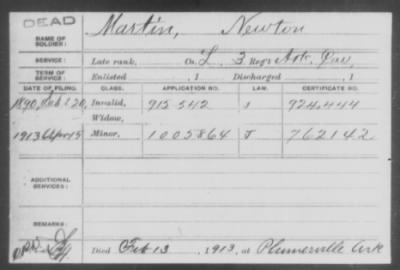 DEAD
NAME OF SOLDIER: Martin, Newton
SERVICE: Late rank, Co. L, 3 Reg't Ark. Cav.
TERM OF SERVICE: Enlisted , 1 Discharged , 1
DATE OF FILING. CLASS. APPLICATION NO. LAW. CERTIFICATE NO.
1890, 20, Invalid, 915542 924.444
Widow,
1913 Apr 15 Minor, 1005864 J 762142
ADDITIONAL SERVICES:
REMARKS:
Died Feb 13, 1913, at Plumerville Ark